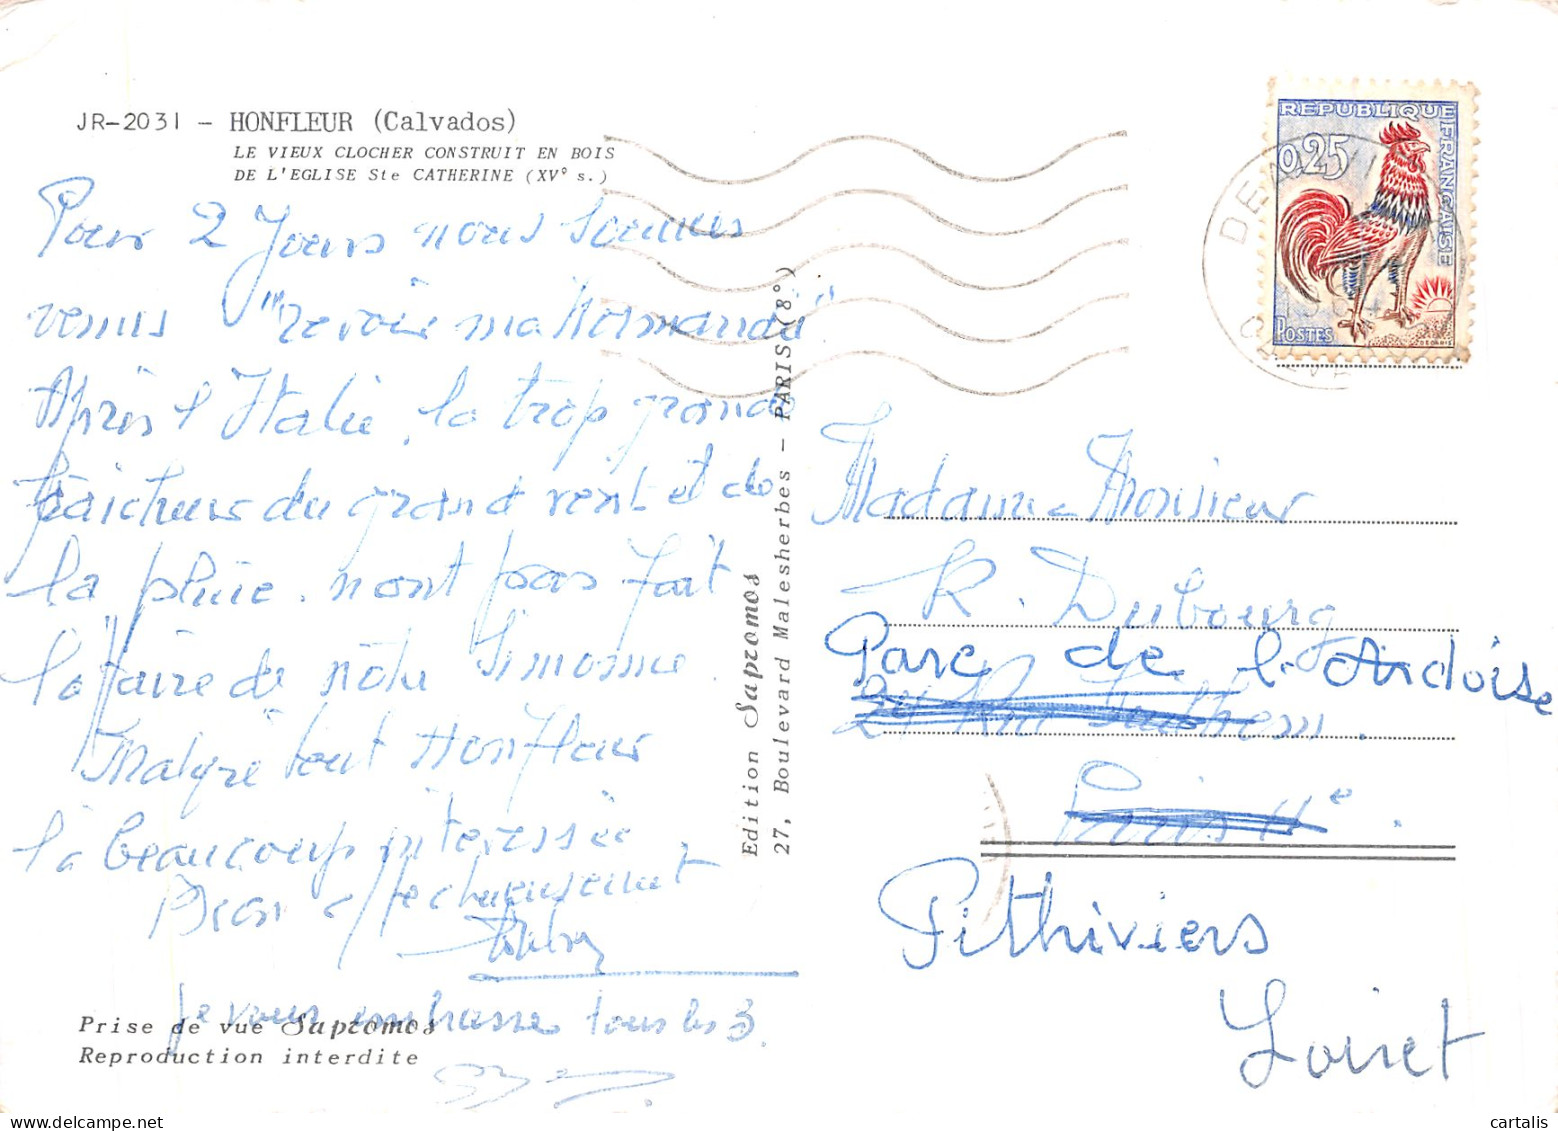 JR-2031 - HONFLEUR (Calvados)
LE VIEUX CLOCHER CONSTRUIT EN BOIS
DE L'EGLISE Ste CATHERINE (XV° s.)
Pour 2 Jours nous sommes
venus "revoir ma Normandie"
Après l'Italie, la trop grande
fraicheur du grand vent et de
la pluie. nont pas fait
l'affaire de nôtre Simonne.
Malgré tout Honfleur
l'a beaucoup interessée
Bien affectueusement
je vous embrasse tous les 3.
Prise de vue Sapromos
Reproduction interdite
Edition Sapromos
27, Boulevard Malesherbes - PARIS (8°)
REPUBLIQUE FRANCAISE
0,25
POSTES
DECARIS
Madame Monsieur
R. Dubourg
Parc de l'Ardoise
24 Rue
Paris e.
Pithiviers
Loiret
cartalis